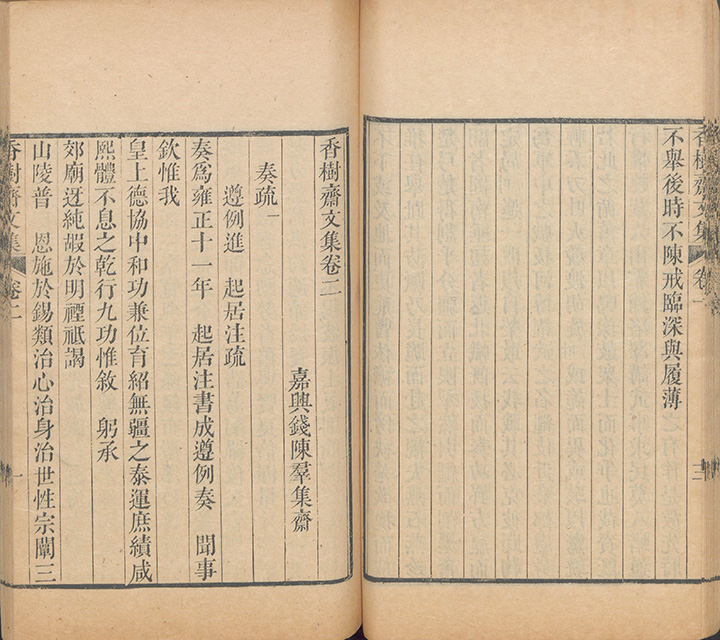 香樹齋文集 卷一
不舉後時不陳戒臨深與履薄
香樹齋文集卷二
嘉興錢陳羣集齋
奏疏一
遵例進　起居注疏
奏爲雍正十一年　起居注書成遵例奏　聞事
欽惟我
皇上德協中和功兼位育紹無疆之泰運庶績咸
熙體不息之乾行九功惟敘　躬承
郊廟迓純嘏於明禋祗謁
山陵普　恩施於錫類治心治身治世性宗闡三
香樹齋文集 卷二 一